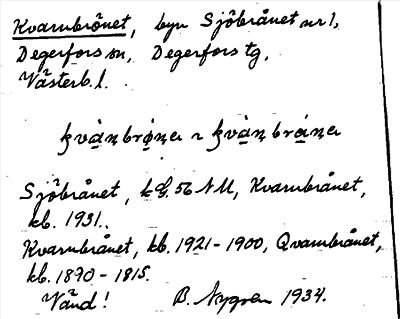 Kvarnbrånet, byn Sjöbrånet nr 1,
Degerfors sn, Degerfors tg,
Västerb. l.
Sjöbrånet, kg. 56 NU, Kvarnbrånet,
kb. 1931.
Kvarnbrånet, kb. 1921-1900, Qvarnbrånet,
kb. 1890-1815.
Vänd! B. Nygren 1934.